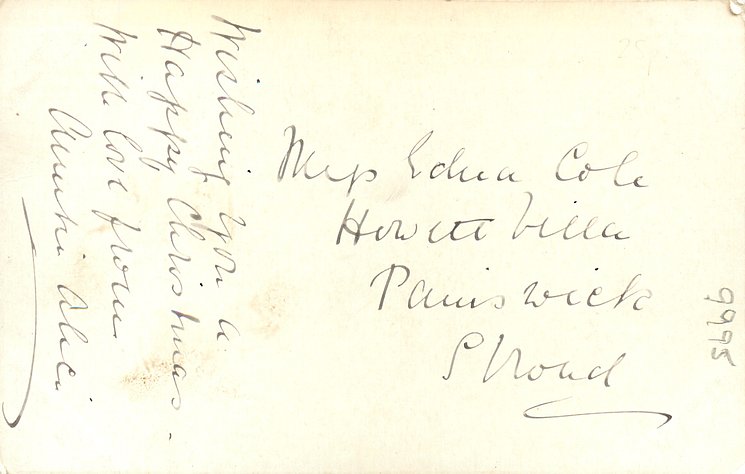 Wishing you a
Happy Christmas.
With love from
Auntie Alice
Miss Edna Cole
Howett Villa
Painswick
Stroud
9995